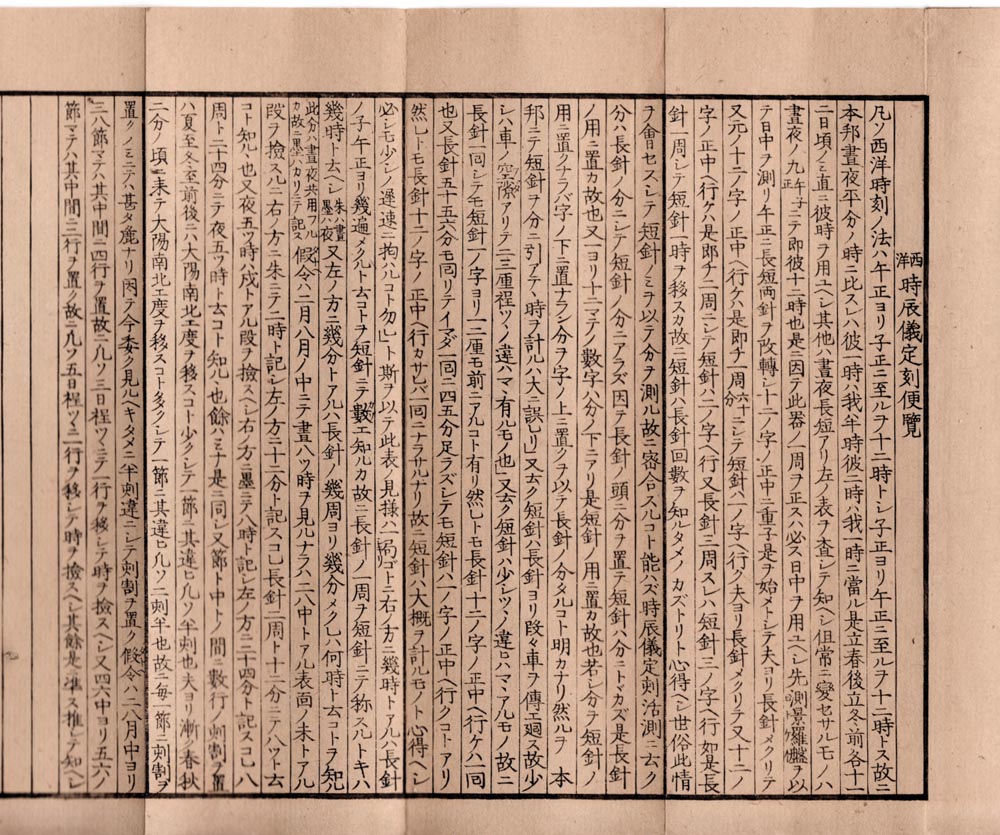 西洋時辰儀定刻便覽
凡ソ西洋時刻ノ法ハ午正ヨリ子正ニ至ルヲ十二時トシ子正ヨリ午正ニ至ルヲ十二時トス故ニ
本邦晝夜平分ノ時ニ此スレハ彼一時ハ我半時彼二時ハ我一時ニ當ル是立春後立冬前各十一
二日頃ノミ直ニ彼時ヲ用ユヘシ其他ハ晝夜長短アリ左ノ表ヲ査シテ知ヘシ但常ニ變セサルモノハ
晝夜ノ九子午正ニテ即彼十二時也是ニ因テ此器ノ一周ヲ正スハ必ス日中ヲ用ユヘシ先測景羅盤ヲ以
テ日中ヲ測リ午正ニ長短両針ヲ改轉シ十二ノ字ノ正中ニ重子是ヲ始メトシテ夫ヨリ長針メクリテ
又元ノ十二ノ字ノ正中ヘ行ケハ是即チ一周六十分ニシテ短針ハ一ノ字ヘ行ク夫ヨリ長針メクリテ又十二ノ
字ノ正中ヘ行ケハ是即チ二周ニシテ短針ハ二ノ字ヘ行又長針三周スレハ短針三ノ字ヘ行如是長
針一周シテ短針一時ヲ移スカ故ニ短針ハ長針回數ヲ知ルタメノカズトリト心得ヘシ世俗此情
ヲ會セスシテ短針ノミヲ以テ分ヲ測ル故ニ密合スルコト能ハズ時辰儀定刻活測ニ云ク
分ハ長針ノ分ニシテ短針ノ分ニアラズ因テ長針ノ頭ニ分ヲ置テ短針ハ分ニトマカズ是長針
ノ用ニ置カ故也又一ヨリ十二マテノ數字ハ分ノ下ニアリ是短針ノ用ニ置カ故也若シ分ヲ短針ノ
用ニ置クナラバ字ノ下ニ置ナラン分ヲ字ノ上ニ置クヲ以テ長針ノ分タルコト明カナリ然ルヲ本
邦ニテ短針ヲ分ニ引アテ、時ヲ計ルハ大ニ誤レリ」又云ク短針ハ長針ヨリ段々車ヲ傳エ廻ス故少
シハ車ノ空隙アリテ二三厘程ツヽノ違ハマヽ有ルモノ也」又云ク短針ハ少シツヽノ違ヒハマヽアルモノ故ニ
長針一同シテモ短針一ノ字ヨリ一二厘モ前ニアルコト有リ然レトモ長針十二ノ字ノ正中ヘ行ケハ一同
也又長針五十五六分モ同リテイマダ一同ニ四五分足ラズシテモ短針ハ一ノ字ノ正中ヘ行クコトアリ
然レトモ長針十二ノ字ノ正中ヘ行カサレバ一同ニナラサルナリ故ニ短針ハ大概ヲ計ルモノト心得ヘシ
必シモ少シノ遅速ニ拘ハルコト勿レト斯ヲ以テ此表ノ見様ハ一局ゴトニ右ノ方ニ幾時トアルハ長針
ノ子午正ヨリ幾遍メクルト云コトヲ短針ニテ數エ知ルカ故ニ長針ノ一周ヲ短針ニテ称スルトキハ
幾時ト云ヘシ朱ハ晝墨ハ夜又左ノ方ニ幾分トアルハ長針ノ幾周ヨリ幾分メクレハ何時ト云コトヲ知ル
此分ハ晝夜共用フルカ故ニ墨ハカリニテ記ス假令ハ二月八月ノ中ニテ晝八ツ時ヲ見ルナラハ二八中トアル表面ノ未トアル
段ヲ撿スルニ右ノ方ニ朱ニテ二時ト記シ左ノ方ニ十二分ト記スコレ長針二周ト十二分ニテ八ツト云
コト知ル也又夜五ツ時ハ戌トアル段ヲ撿スヘシ右ノ方ニ墨ニテ八時ト記シ左ノ方ニ二十四分ト記スコレ八
周ト二十四分ニテ夜五ツ時ト云コト知ル也餘ハミナ是ニ同シ又節ト中トノ間ニ數行ノ刺割ヲ置
ハ夏至冬至前後ニハ大陽南北エ度ヲ移スコト少クシテ一節ニ其違ヒ凡ソ半刺也夫ヨリ漸々春秋
二分ノ頃ニ末テ大陽南北エ度ヲ移スコト多クシテ一節ニ其違ヒ凡ソ二刺半也故ニ毎一節ニ刺割ヲ
置クノミニテハ甚タ麁ナリ因テ今委ク見ルヘキタメニ半刺違ニシテ刺割ヲ置ク假令ハ二八月中ヨリ
三八節マテハ其中間ニ四行ヲ置故ニ凡ソ三日程ツヽニテ一行ヲ移シテ時ヲ撿スヘシ又四六中ヨリ五六ノ
節マテハ其中間ニ二行ヲ置ク故ニ凡ソ五日程ツヽニ一行ヲ移シテ時ヲ撿スヘシ其餘是ニ準ス推シテ知ヘシ